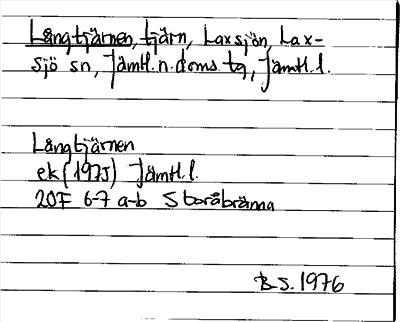 Långtjärnen, tjärn, Laxsjön, Lax-
sjö sn, Jämtl.n.doms.tg, Jämtl.l.
Långtjärnen
ek (1975) Jämtl.l.
20F 6-7 a-b Storåbränna
B.S. 1976